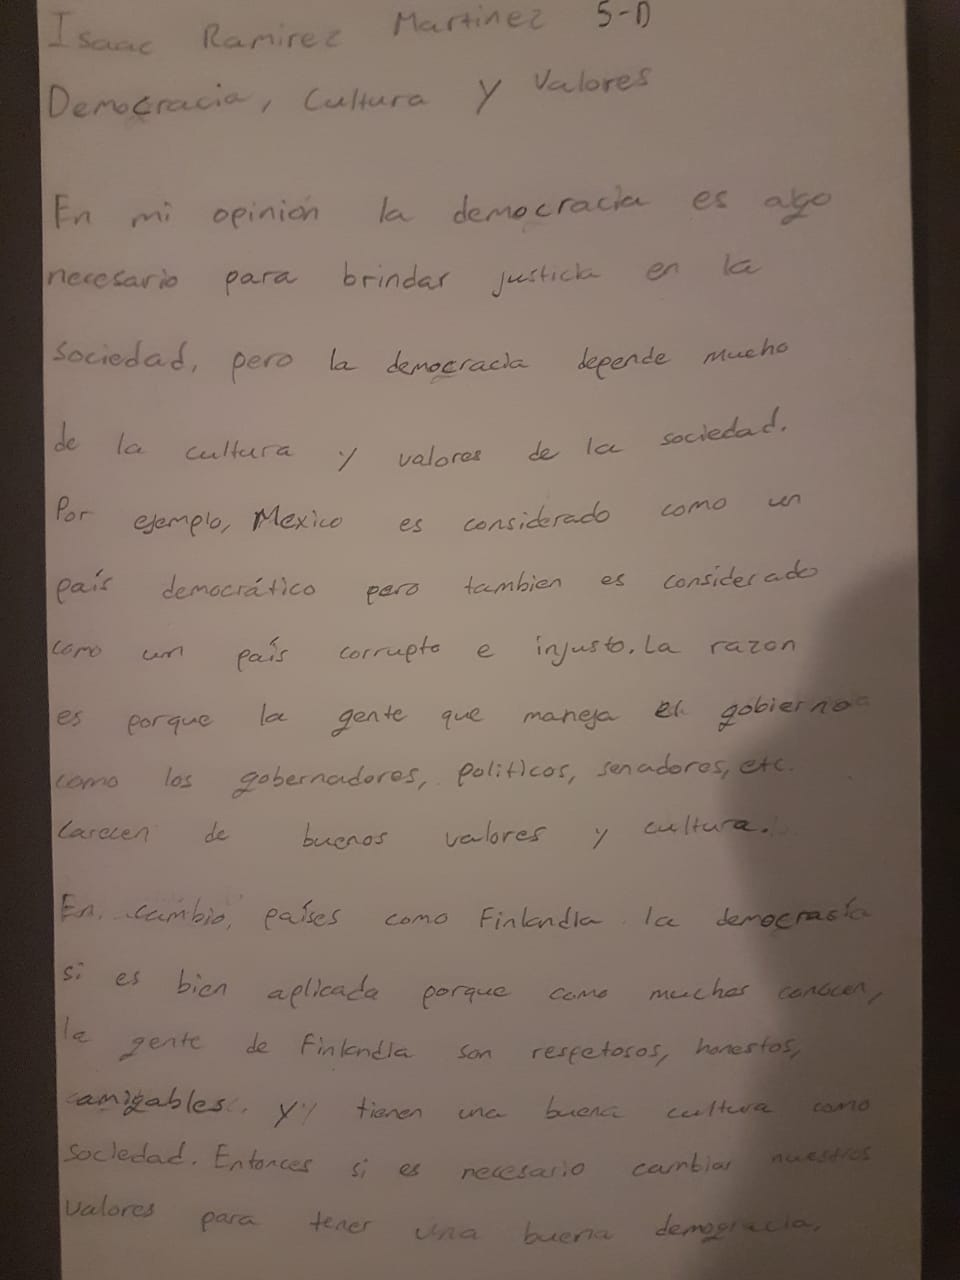 Isaac Ramirez Martinez 5-D
Democracia, Cultura y Valores
En mi opinión la democracia es algo
necesario para brindar justicia en la
sociedad, pero la democracia depende mucho
de la cultura y valores de la sociedad.
Por ejemplo, Mexico es considerado como un
país democrático pero tambien es considerado
como un país corrupto e injusto. La razon
es porque la gente que maneja el gobierno
como los gobernadores, politicos, senadores, etc.
carecen de buenos valores y cultura.
En cambio, países como Finlandia la democrasia
si es bien aplicada porque como muchos conocen,
la gente de Finlandia son respetosos, honestos,
amigables y tienen una buena cultura como
sociedad. Entonces si es necesario cambiar nuestros
valores para tener una buena democracia.